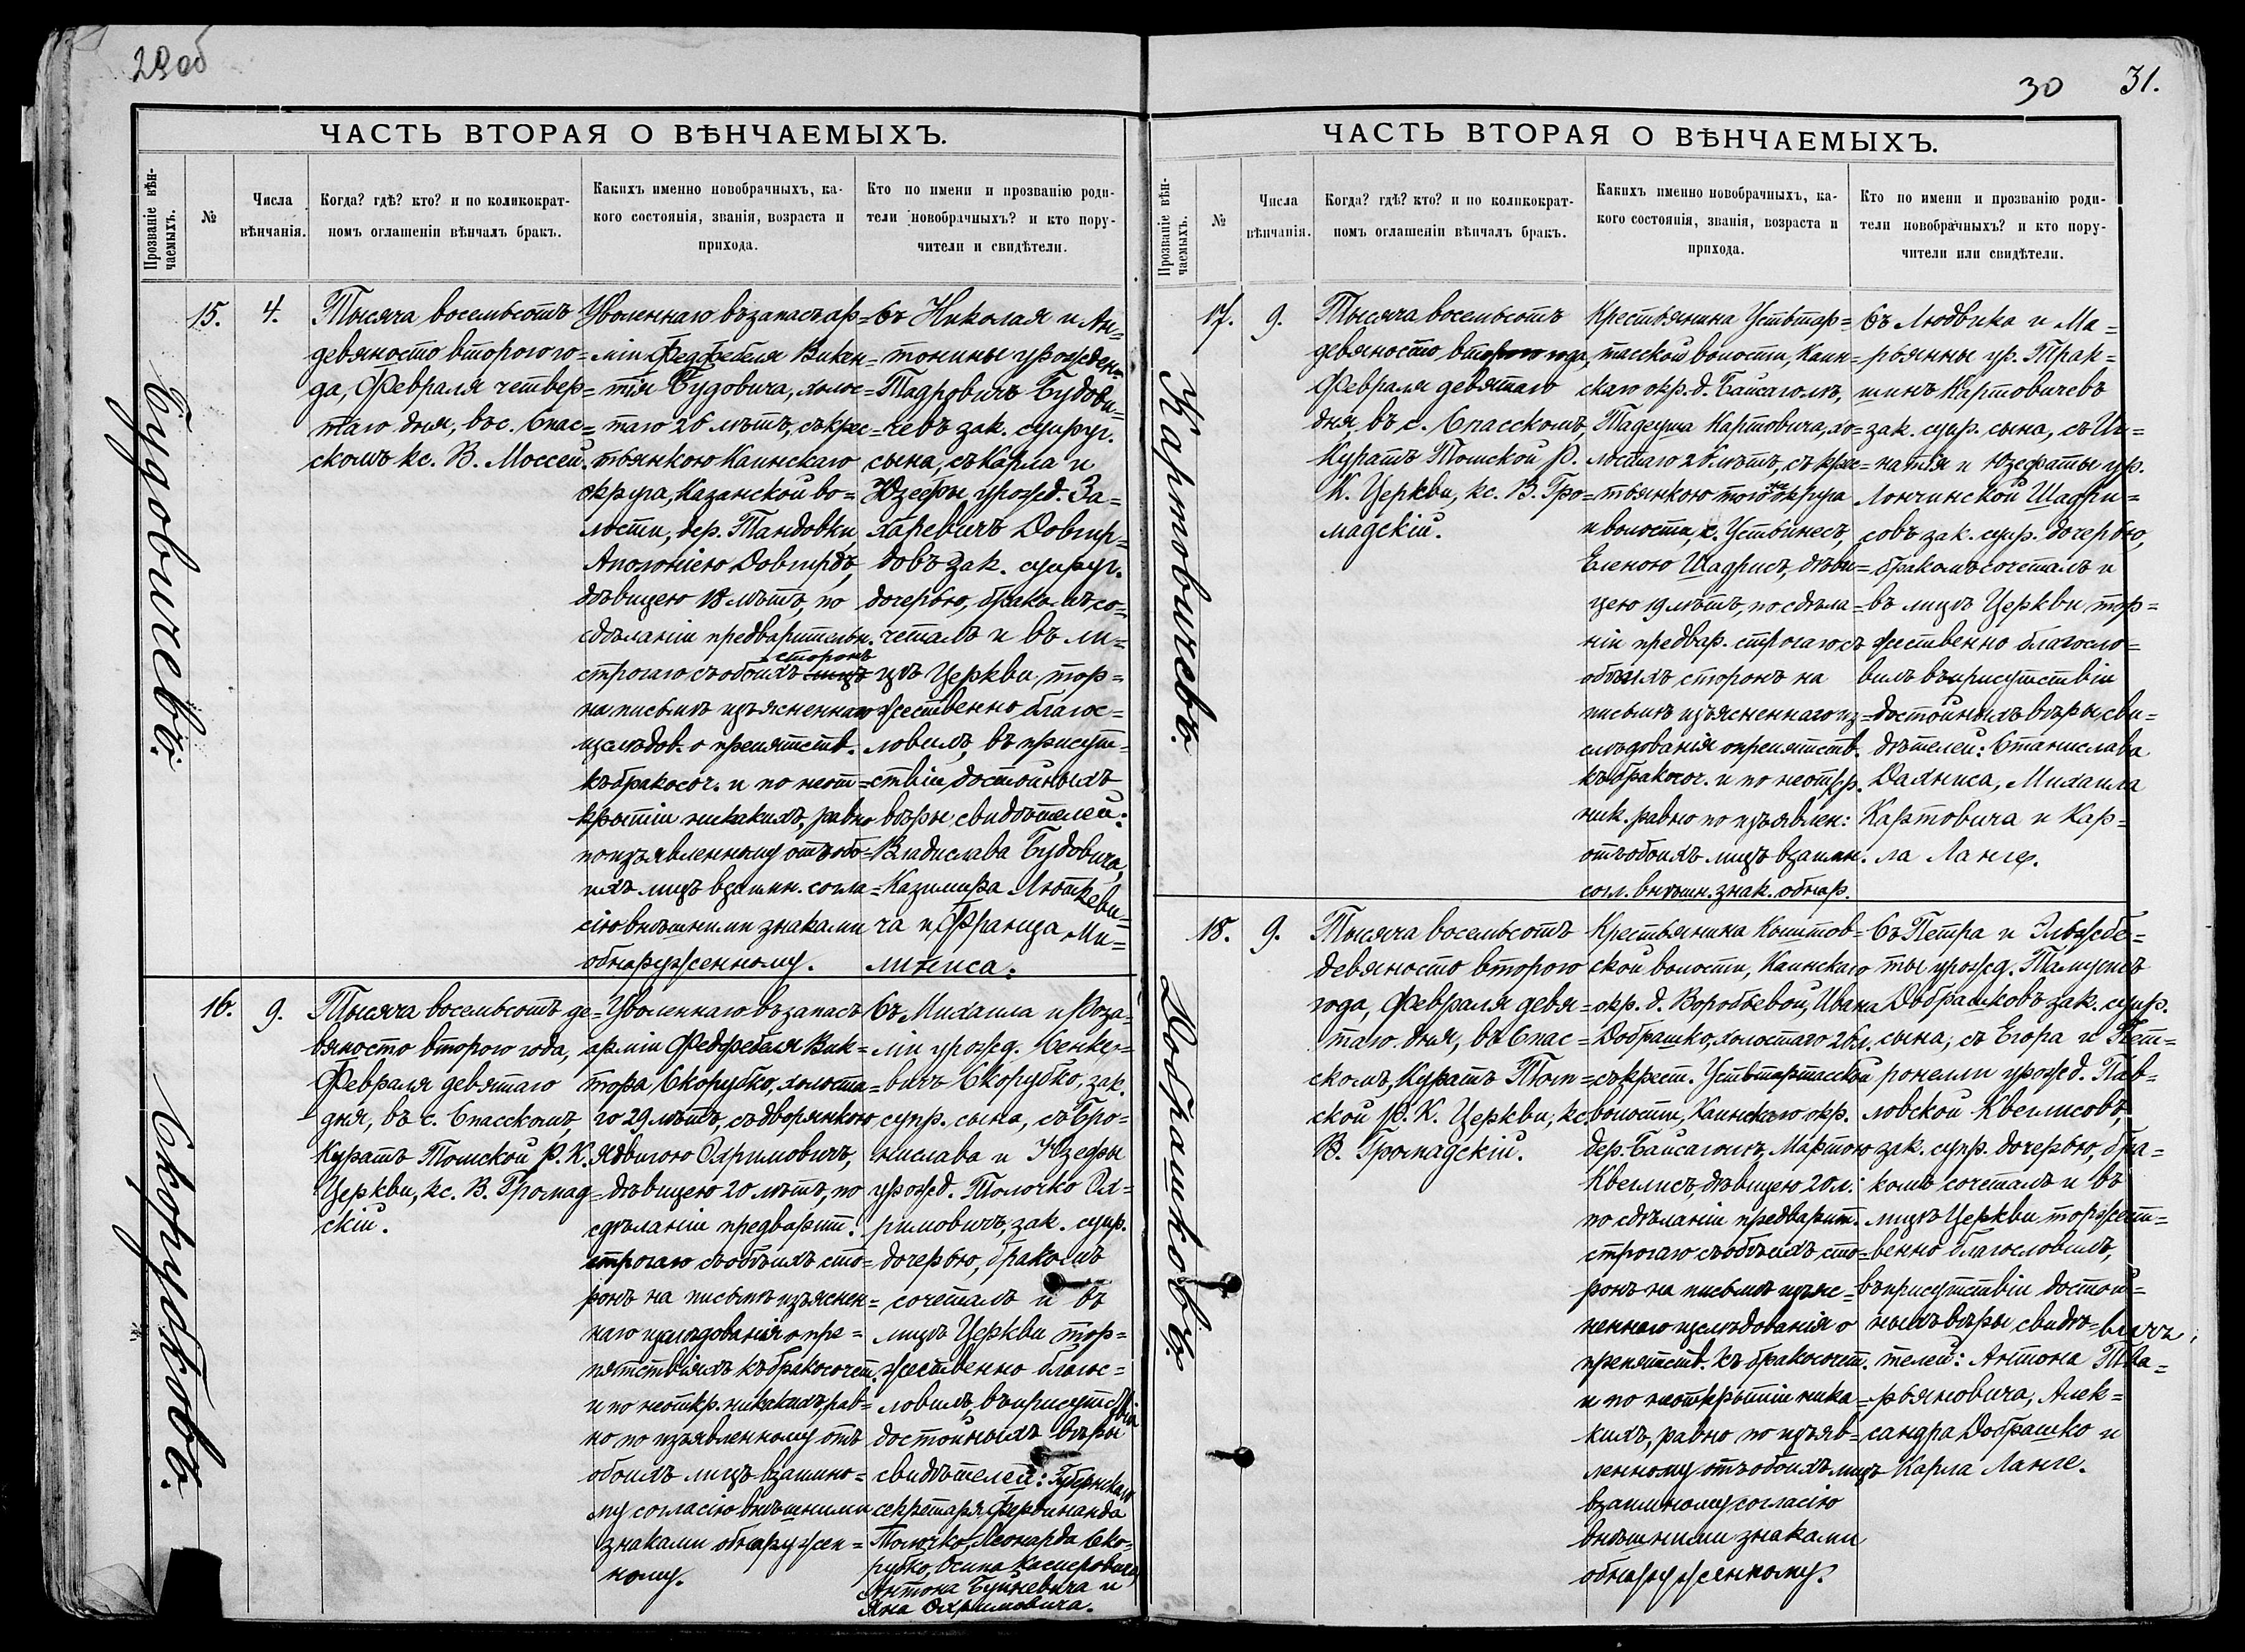 29 об
ЧАСТЬ ВТОРАЯ О ВѢНЧАЕМЫХЪ.
Прозваніе вѣн-
чаемыхъ.
№
Числа
вѣнчанія.
Когда? гдѣ? кто? и по коликократ-
номъ оглашеніи вѣнчалъ бракъ.
Какихъ именно новобрачныхъ, ка-
кого состоянія, званія, возраста и
прихода.
Кто по имени и прозванію роди-
тели новобрачныхъ? и кто пору-
чители и свидѣтели.
Будовичевъ.
15.
4.
Тысяча восемьсотъ
девяносто второго го=
да, Февраля четвер=
таго дня, въ с. Спас=
скомъ кс. В. Моссей.
Уволеннаго въ запасъ ар=
міи Федфебеля Викен=
тія Будовича, холос=
таго 26 лѣтъ, съ крес=
тьянкою Каинскаго
округа, Казанской во=
лости, дер. Тандовки,
Аполоніею Довгирдъ,
дѣвицею 18 лѣтъ, по
сдѣланіи предварительн.
строгаго съ обоихъ сторонъ
на письмѣ изъясненнаго
изслѣдов. о препятств.
къ бракосоч. и по неот=
крытіи никакихъ, равно
по изъявленному отъ обо=
ихъ лицъ взаимн. согла=
сію внѣшними знаками
обнаруженному.
Съ Николая и Ан=
тонины урожден=
Тадровичъ Будови=
чевъ зак. супруг.
сына, съ Карла и
Юзефы, урожд. За=
харевичъ Довгир=
довъ зак. супруг.
дочерью, бракомъ со=
четалъ и въ ли=
цѣ Церкви, тор=
жественно благос=
ловилъ, въ присут=
ствіи достойныхъ
вѣры свидѣтелей:
Владислава Будовича,
Казимира Люткеви=
ча и Франца Ми=
лхниса.
Скорубковъ.
16.
9.
Тысяча восемьсотъ де=
вяносто второго года,
Февраля девятаго
дня, въ с. Спасскомъ,
Куратъ Томской Р. К.
Церкви, кс. В. Громад=
скій.
Уволеннаго въ запасъ
арміи Федфебеля Вик=
тора Скорубко, холоста=
го 29 лѣтъ, съ дворянкою
Ядвигою Охримовичъ,
дѣвицею 20 лѣтъ, по
сдѣланіи предварит.
строгаго съ обѣихъ сто=
ронъ на письмѣ изъяснен=
наго изслѣдованія о пре=
пятствіяхъ къ бракосочет.
и по неоткр. никакихъ, рав=
но по изъявленному отъ
обоихъ лицъ взаимно=
му согласію внѣшними
знаками обнаружен=
ному.
Съ Михаила и Роза=
ліи урожд. Сенке=
вичъ Скорубко, зак.
супр. сына, съ Бро=
нислава и Юзефы
урожд. Толочко Ох=
римовичъ, зак. супр.
дочерью, бракомъ
сочеталъ и въ
лицѣ Церкви тор=
жественно благос=
ловилъ, въ присутствіи
достойныхъ вѣры
свидѣтелей: Губернскаго
секретаря Фердинанда
Толочко, Леонарда Ско=
рубко, Осипа Касперовича,
Антона Буйневича и
Яна Охримовича.
30
31.
ЧАСТЬ ВТОРАЯ О ВѢНЧАЕМЫХЪ.
Прозваніе вѣн-
чаемыхъ.
№
Числа
вѣнчанія.
Когда? гдѣ? кто? и по коликократ-
номъ оглашеніи вѣнчалъ бракъ.
Какихъ именно новобрачныхъ, ка-
кого состоянія, званія, возраста и
прихода.
Кто по имени и прозванію роди-
тели новобрачныхъ? и кто пору-
чители или свидѣтели.
Картовичевъ.
17.
9.
Тысяча восемьсотъ
девяносто второго года,
Февраля девятаго
дня, въ с. Спасскомъ,
Куратъ Томской Р.
К. Церкви, кс. В. Гро=
мадскій.
Крестьянина Устьтар=
тасской волости, Каин=
скаго окр. д. Байсаголъ,
Тадеуша Картовича, хо=
лостаго 26 лѣтъ, съ крес=
тьянкою того же округа
и волости, с. Устьинесъ,
Еленою Шадрисъ, дѣви=
цею 19 лѣтъ, по сдѣла=
ніи предвар. строгаго съ
обѣихъ сторонъ на
письмѣ изъясненнаго из=
слѣдованія о препятств.
къ бракосоч. и по неоткр.
ник. равно по изъявлен:
отъ обоихъ лицъ взаимн.
согл. внѣшн. знак. обнар.
Съ Людвика и Ма=
рьянны ур. Трак=
шинъ Картовичевъ
зак. супр. сына, съ Иг=
натія и Юзефаты ур.
Лончинской Шадри=
совъ зак. супр. дочерью,
бракомъ сочеталъ и
въ лицѣ Церкви тор=
жественно благосло=
вилъ въ присутствіи
достойныхъ вѣры, сви=
дѣтелей: Станислава
Дахниса, Михаила
Картовича и Кар=
ла Ланге.
Добрашковъ.
18.
9.
Тысяча восемьсотъ
девяносто второго
года, Февраля девя=
таго дня, въ Спас=
скомъ, Куратъ Том=
ской Р. К. Церкви, кс.
В. Громадскій.
Крестьянина Кыштов=
ской волости, Каинскаго
окр. д. Воробьевой, Ивана
Добрашко, холостаго 26 л.
съ крест. Устьтартасской
волости, Каинскаго окр.
дер. Байсаголъ, Мартою
Квеглисъ, дѣвицею 20 л.
по сдѣланіи предварит.
строгаго съ обѣихъ сто=
ронъ на письмѣ изъяс=
неннаго изслѣдованія о
препятств. къ бракосочет.
и по неоткрытіи ника=
кихъ, равно по изъяв=
ленному отъ обоихъ лицъ
взаимному согласію
внѣшними знаками
обнаруженному.
Съ Петра и Эльжбе=
ты урожд.
Добрашковъ зак. супр.
сына, съ Егора и Пет=
ронелли урожд. Пав=
ловской Квеглисовъ,
зак. супр. дочерью, бра=
комъ сочеталъ и въ
лицѣ Церкви торжест=
венно благословилъ,
въ присутствіи достой=
ныхъ вѣры свидѣ=
телей: Антона
рьяновича, Алек=
сандра Добрашко и
Карла Ланге.